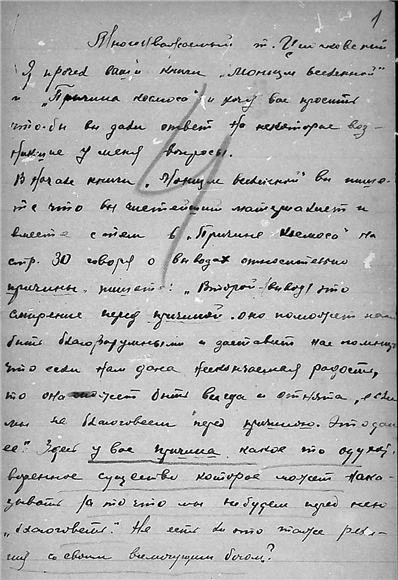 1
Многоуважаемый т. Циолковский
Я прочел ваши книги „Монизм вселенной"
и „Причина космоса" и хочу вас просить
что-бы вы дали ответ на некоторые воз-
никшие у меня вопросы.
В начале книги „Монизм вселенной" вы пише-
те что вы чистейший материалист и
вместе с тем в „Причине космоса" на
стр. 30 говоря о выводах относительно
причины, пишете: „Второй (вывод) это
смирение перед причиной. Оно поможет нам
быть благоразумными и заставит нас помнить
что если нам дана нескончаемая радость,
то она может быть всегда и отнята, если
мы не благоговеем перед причиною. Это дал
ее". Здесь у вас причина какое то одухот-
воренное существо которое может нака-
зывать за то что мы не будем перед нею
„благоговеть". Не есть ли это тоже рели-
гия со своим всемогущим богом?
4